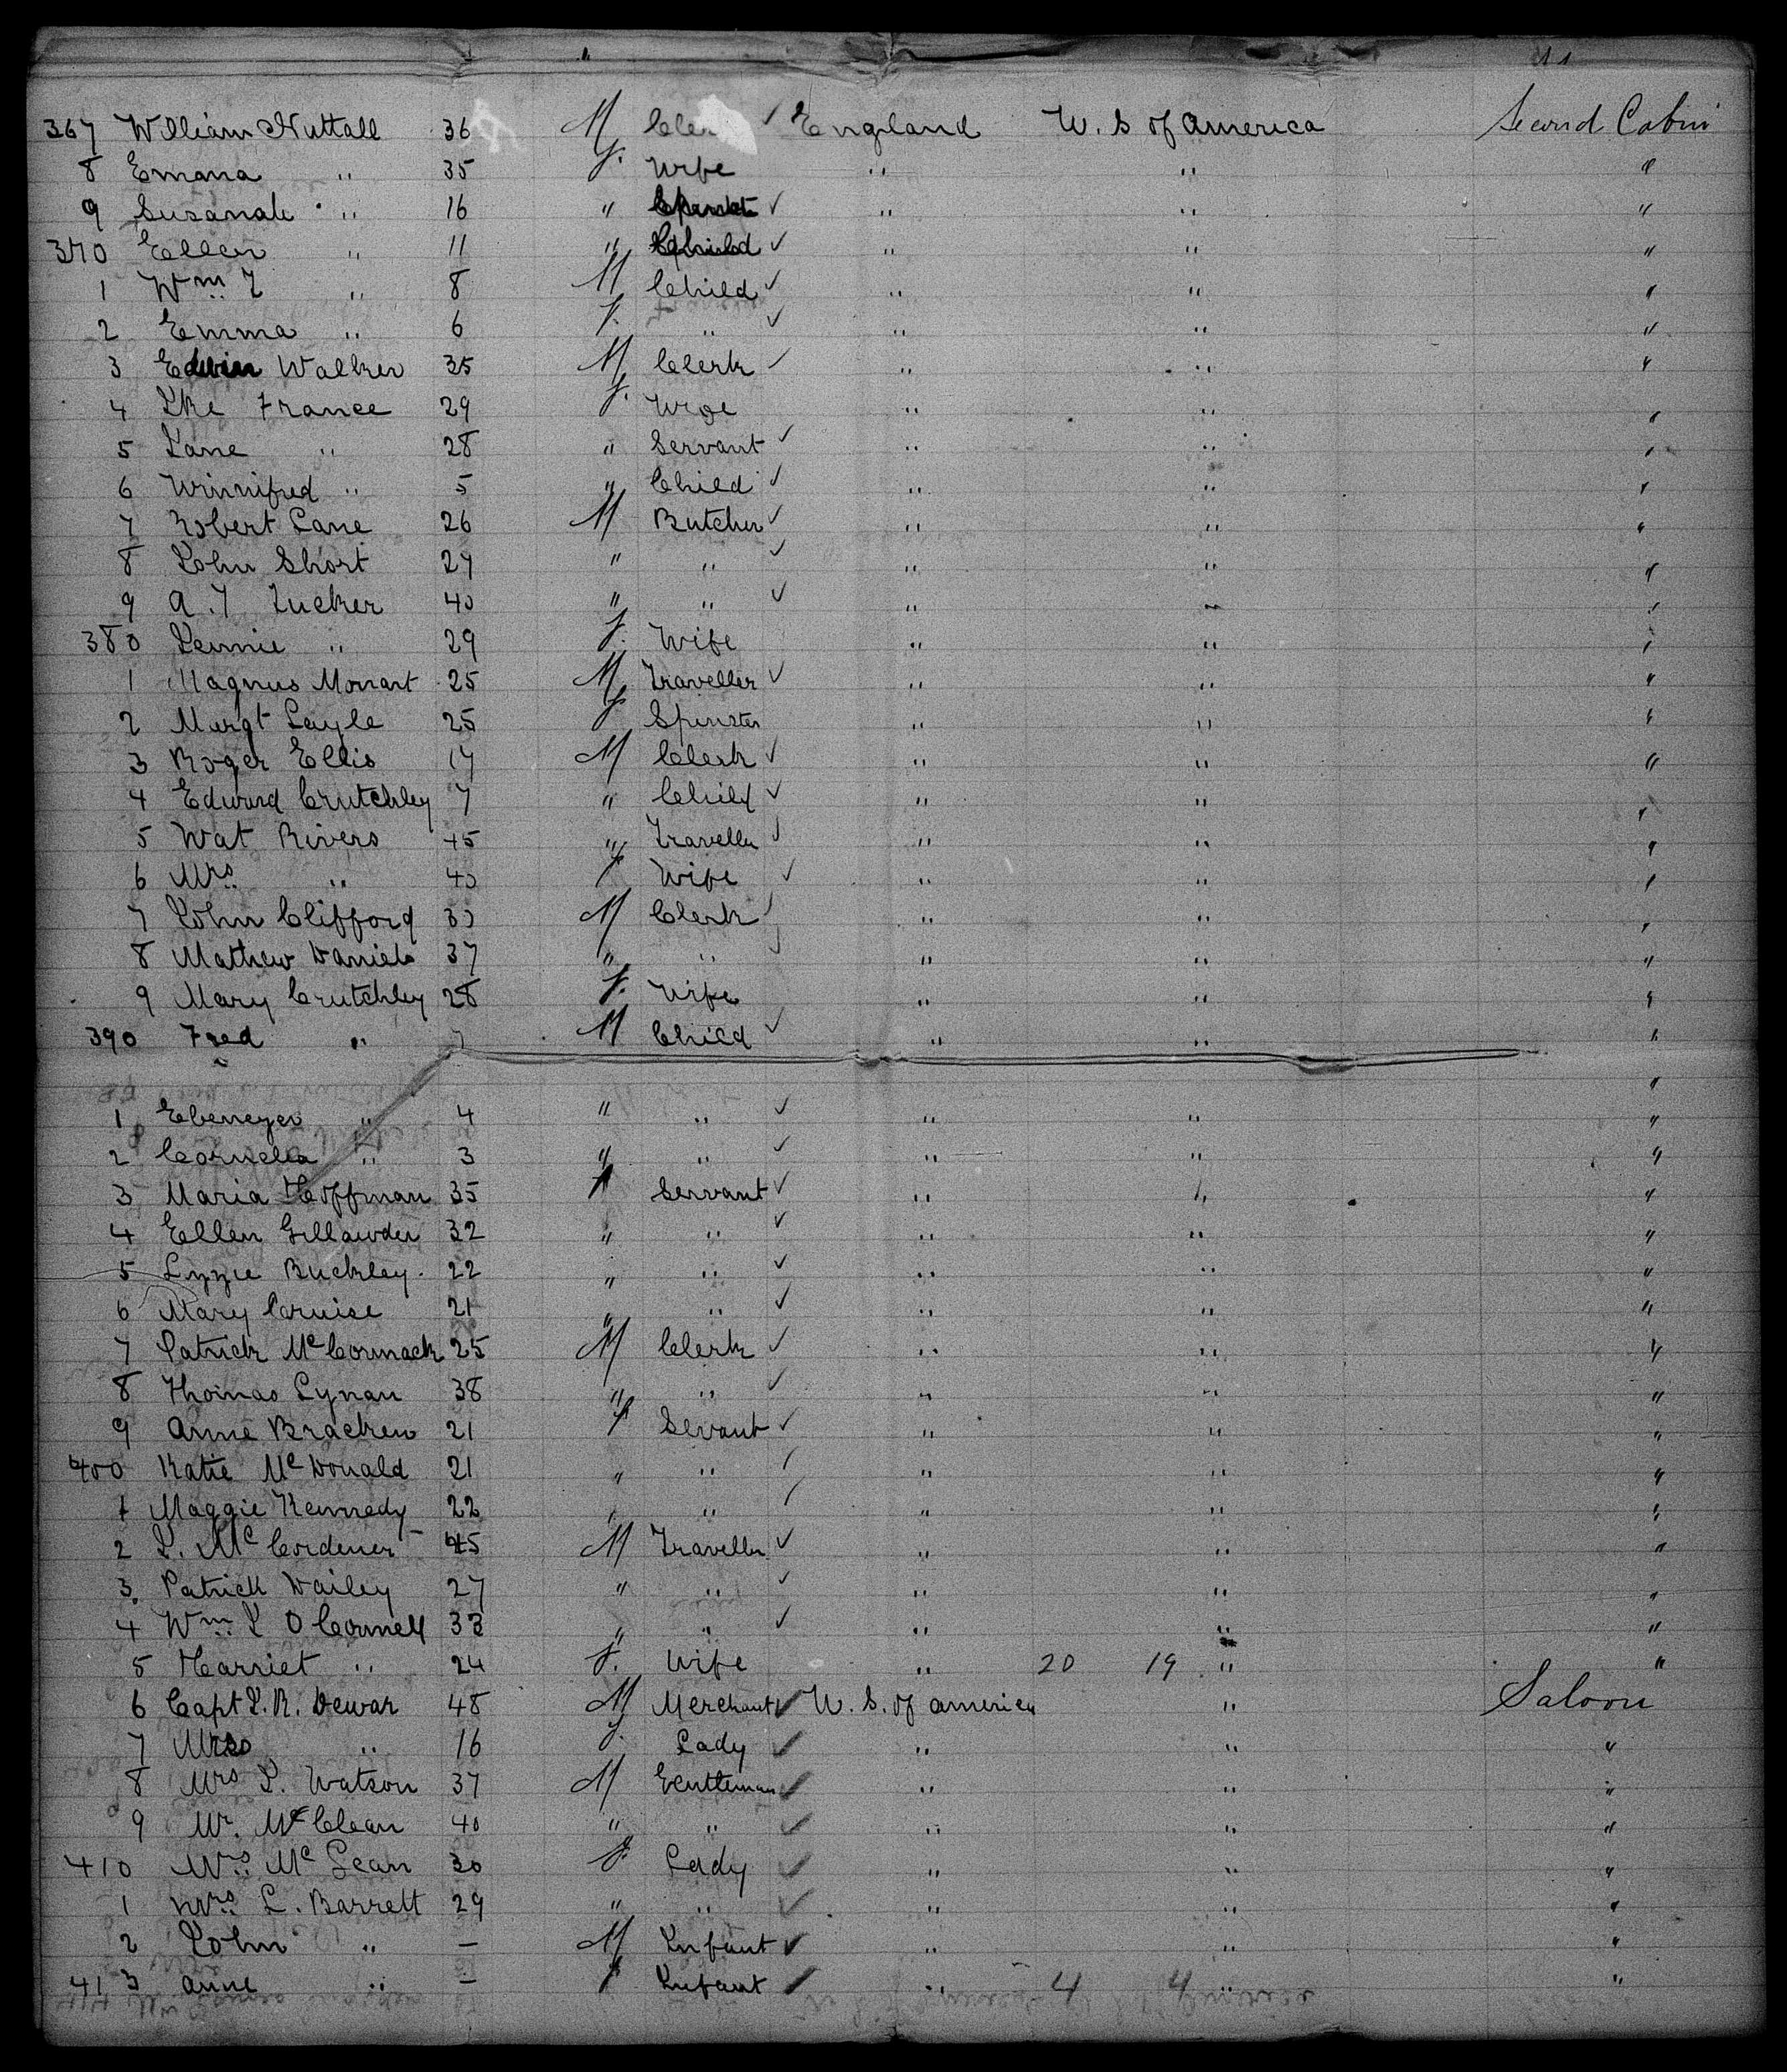 11
367 William Nuttall 36 M Cler ✓ England U. S of America Second Cabin
8 Emma " 35 f. Wife " " "
9 Susanah " 16 " Spinster ✓ " " "
370 Ellen " 11 " Child ✓ " " "
1 Wm T " 8 M Child ✓ " " "
2 Emma " 6 f. " ✓ " " "
3 Edwin Walker 35 M Clerk ✓ " " "
4 France 29 f. " " "
5 Jane " 28 " Servant ✓ " " "
6 Winnifred " 5 " Child ✓ " " "
7 Robert Lane 26 M Butcher ✓ " " "
8 John Short 27 " " ✓ " " "
9 A. T Tucker 40 " " ✓ " " "
380 Jennie " 29 f. Wife " " "
1 Magnus 25 M Traveller ✓ " " "
2 Margt Layle 25 f Spinster " " "
3 Roger Ellis 17 M Clerk ✓ " " "
4 Edward Crutchley 7 " Child ✓ " " "
5 Wat Rivers 45 " Traveller ✓ " " "
6 Mrs " 40 f Wife ✓ " " "
7 John Clifford 30 M Clerk ✓ " " "
8 Mathew Daniels 37 " " ✓ " " "
9 Mary Crutchley 28 f. Wife " " "
390 Fred " 7 M Child ✓ " " "
"
1 Ebenezer " 4 " " ✓ " " "
2 Cornelia " 3 " " ✓ " " "
3 Maria Hoffman 35 f Servant ✓ " " "
4 Ellen Gillawder 32 " " ✓ " " "
5 Lizzie Buckley. 22 " " ✓ " " "
6 Mary Cruise 21 " " ✓ " " "
7 Patrick McCormack 25 M Clerk ✓ " " "
8 Thomas Lynan 38 " " ✓ " " "
9 Anne Bracken 21 f Servant ✓ " " "
400 Katie McDonald 21 " " ✓ " " "
1 Maggie Kennedy 22 " " ✓ " " "
2 J. McCordener 45 M Traveller ✓ " " "
3 Patrick Dailey 27 " " ✓ " " "
4 Wm J O Connell 33 " " ✓ " " "
5 Harriet " 24 f. Wife " 20 19 " "
6 Capt J. R. Dewar 48 M Merchant ✓ U. S. of America " Saloon
7 " 16 f. Lady ✓ " " "
8 Mrs J. Watson 37 M Gentleman ✓ " " "
9 Mr. McClean 40 " " ✓ " " "
410 Mrs McLean 30 f Lady ✓ " " "
1 Mrs L. Barrett 29 " " ✓ " " "
2 John " — M Infant ✓ " " "
413 Anne " — f Infant ✓ " 4 4 " "